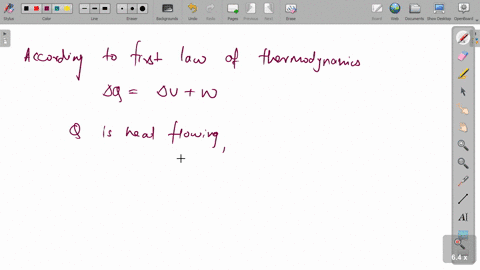 Colors
Board
Eraser
Backgrounds
Undo
Redo
Pages
Previous
Next
Erase
Board
Web
Documents
Show Desktop
OpenBoard
According to first law of thermodynamics
ΔQ = ΔU + W
Q is heat flowing,
6.4 x